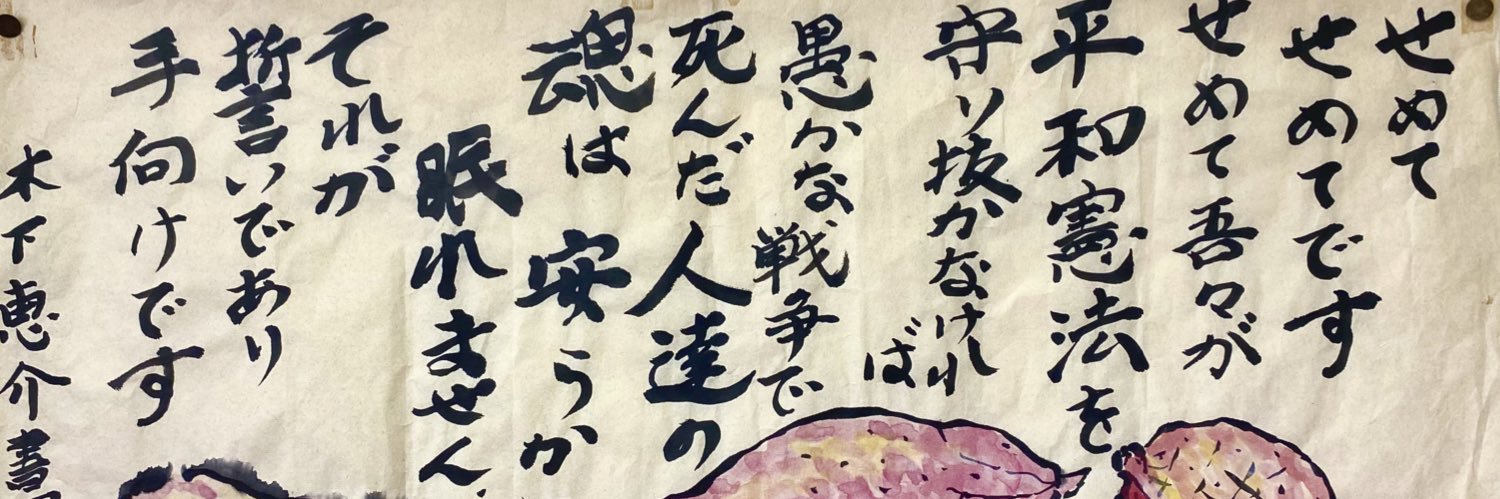 せめて
せめてです
せめて吾々が
平和憲法を
守り抜かなけれ
ば
愚かな戦争で
死んだ人達の
魂は安らか
眠れません、
それが
誓いであり
手向けです
木下恵介書